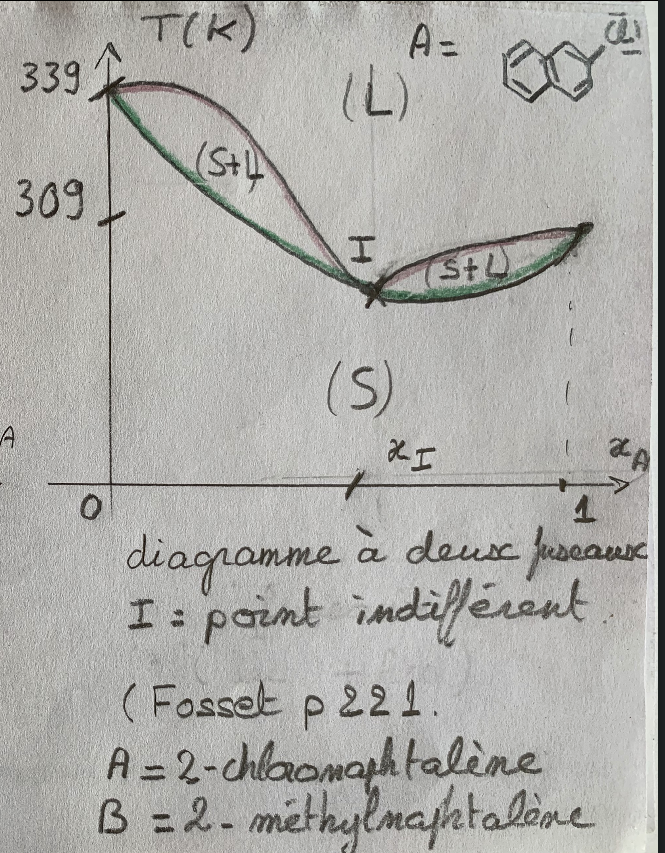 T(K)
A = Cl
339
(L)
(S+L)
309
I
(S+L)
(S)
A
x_I
x_A
0
1
diagramme à deux fuseaux
I = point indifférent.
(Fosset p 221.
A = 2-chloronaphtalène
B = 2-méthylnaphtalène